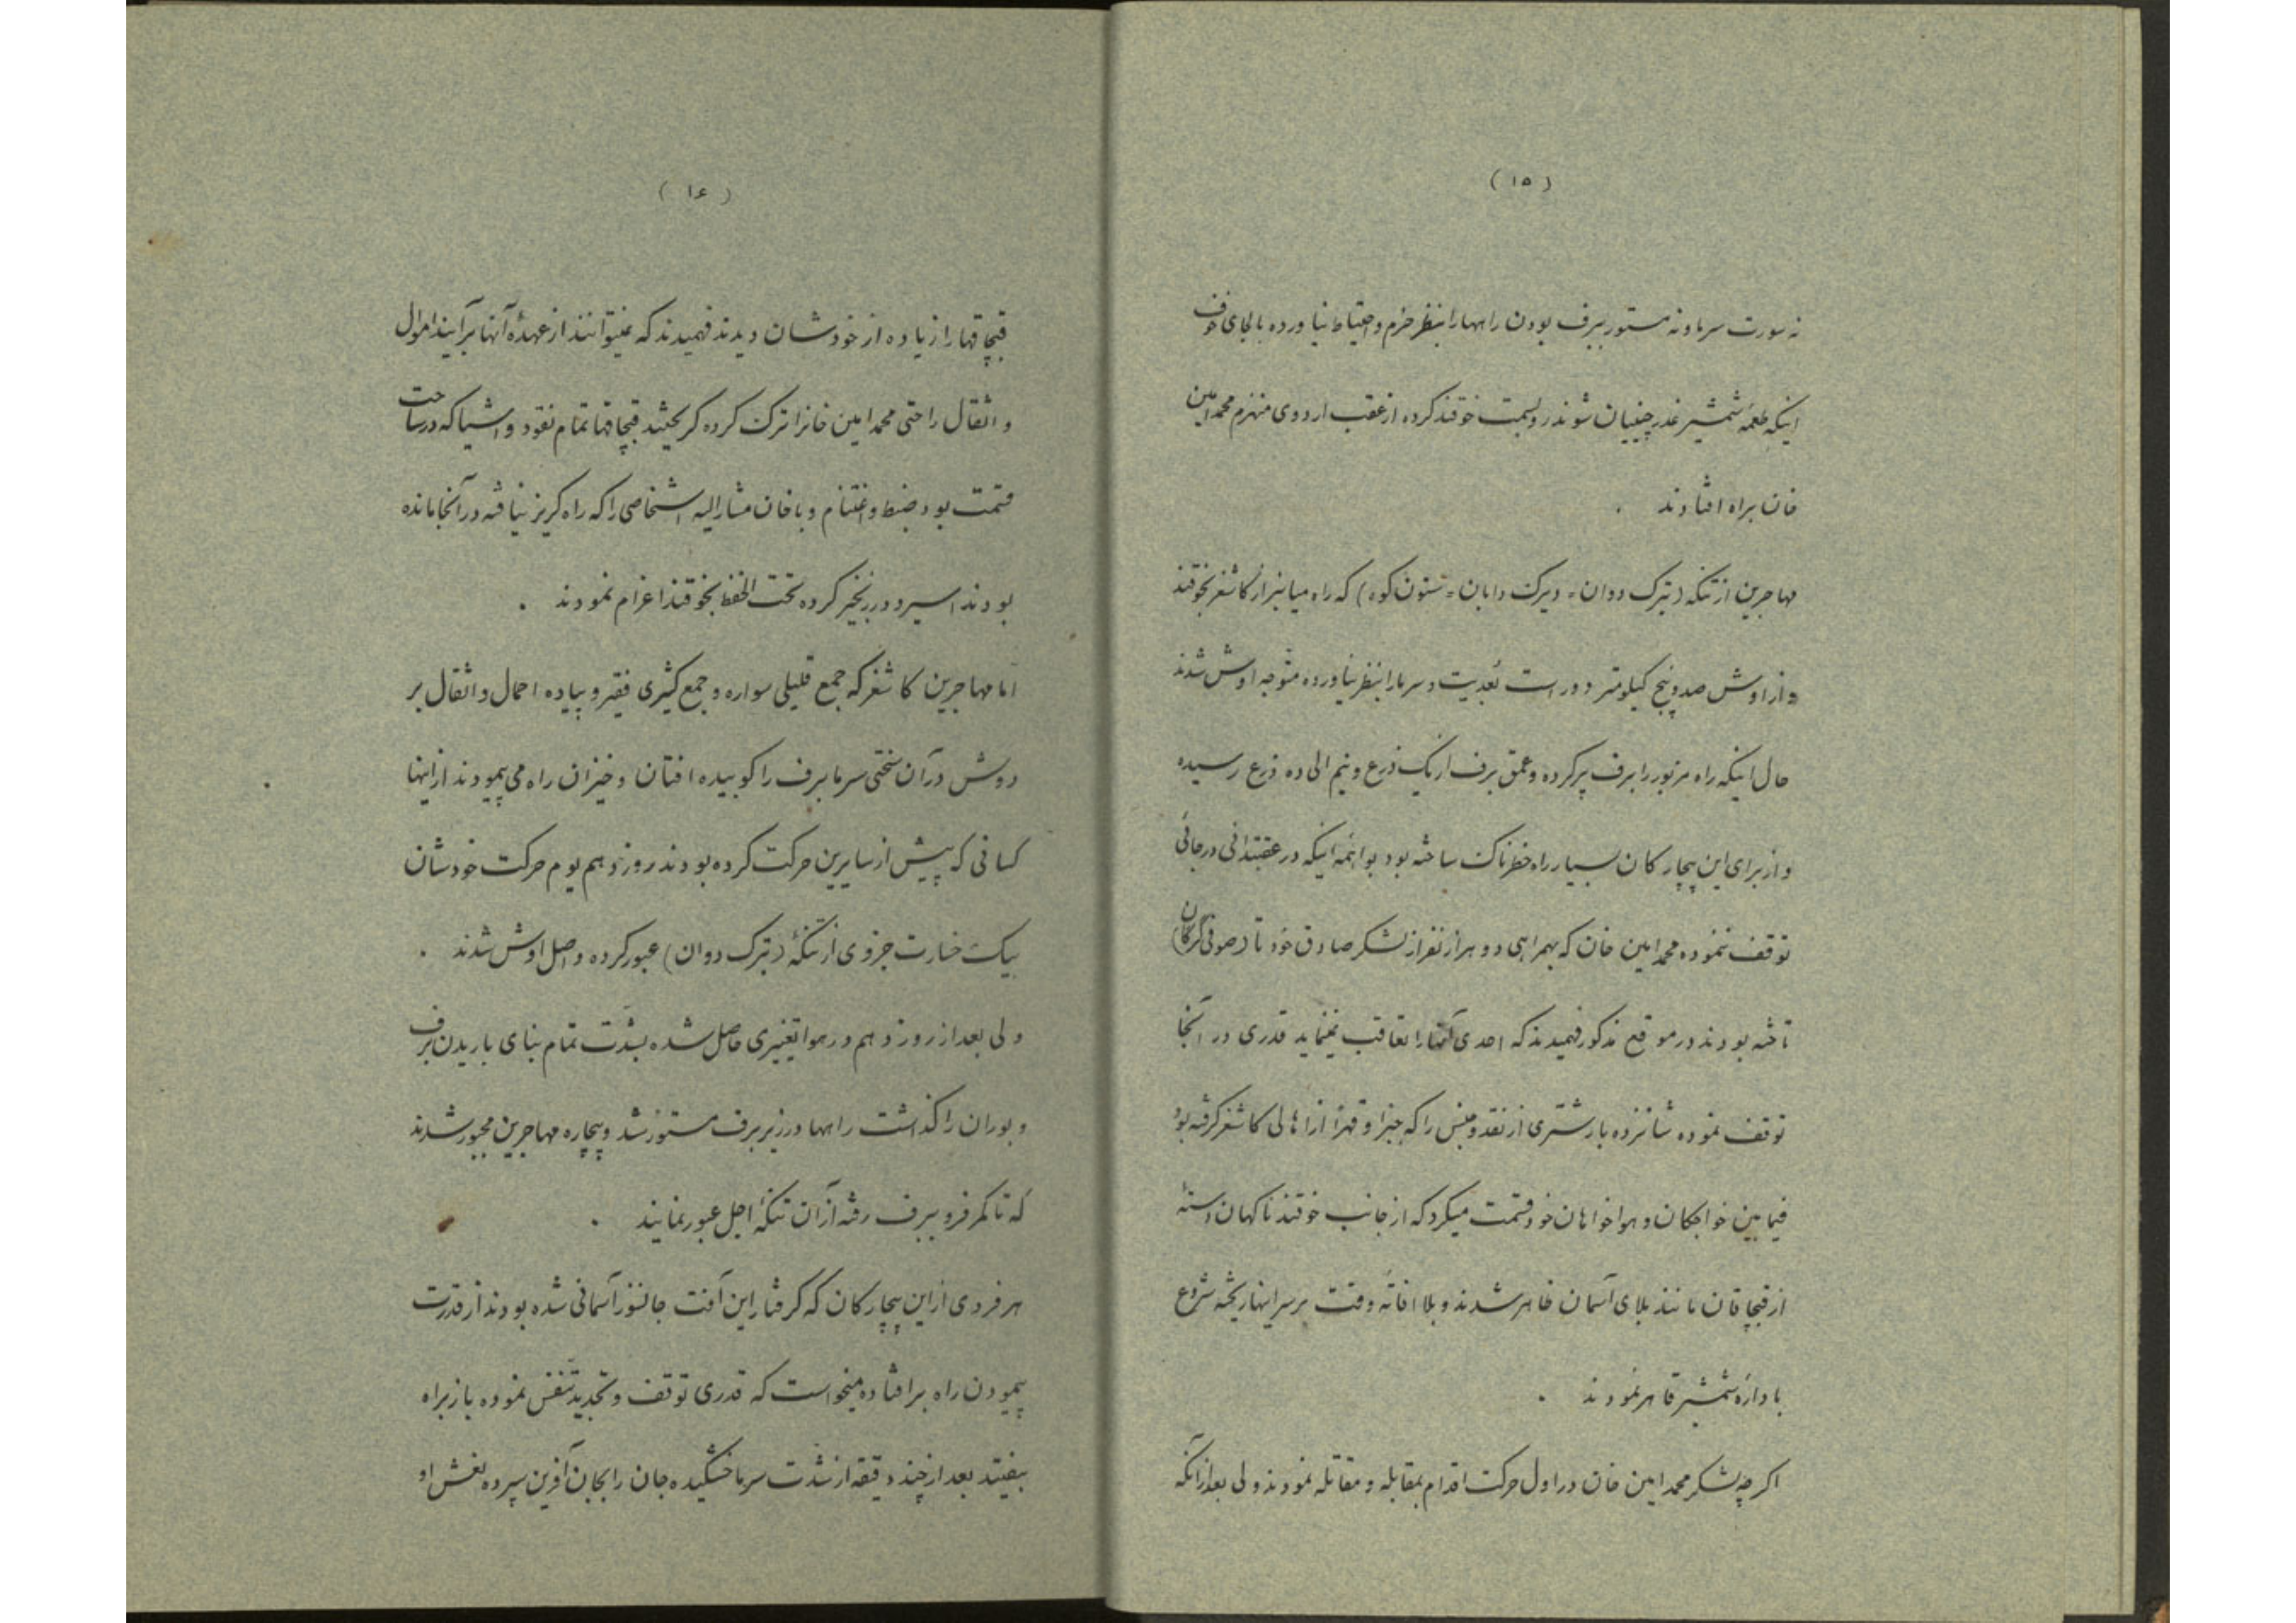 (۱۵)
نه سورت سرما و نه مستور ببرف بودن راهها را بنظر حزم و احتیاط نیاورده بالجای خوف
اینکه طعمهٔ شمشیر غدر چینیان شوند رو بسمت خوقند کرده از عقب اردوی منهزم محمد امین
خان براه افتادند .
مهاجرین از تنکه (ترک دوان = دیرک دابان = ستون کوه) که راه میانبر از کاشغر بخوقند
و از اوش صد و پنج کیلومتر دور است بُعدیت و سرما را بنظر نیاورده متوجه اوش شدند
حال اینکه راه مزبور را برف پر کرده و عمق برف از یک ذرع و نیم الی ده ذرع رسیده
و از برای این بیچارکان بسیار راه خطرناک ساخته بود بواهمهٔ اینکه در عقبند انی در جائی
توقف ننموده محمد امین خان که بهمراهی دو هزار نفر از لشکر صادق خود تا (صوفی کرکان)
تاخته بودند در موقع مذکور فهمیدند که احدی آنها را تعاقب نمینماید قدری در آنجا
توقف نموده شانزده بار شتری از نقد و جنس را که جبراً و قهراً از اهالی کاشغر کرفته بود
فیمابین خواجکان و هواخواهان خود قسمت میکرد که از جانب خوقند ناکهان دستهٔ
از قپچاقان مانند بلای آسمان ظاهر شدند و بلا افاتهٔ وقت بر سر اینها ریخته شروع
با دارهٔ شمشیر قاهر نمودند .
اکرچه لشکر محمد امین خان در اول حرکت اقدام بمقابله و مقاتله نمودند ولی بعد از آنکه
(۱۶)
قپچاقها را زیاده از خودشان دیدند فهمیدند که نمیتوانند از عهدهٔ آنها برآیند اموال
و اثقال را حتی محمد امین خانرا ترک کرده کریختند قپچاقها تمام نقود و اشیا که در ساحت
قسمت بود ضبط و اغتنام و با خان مشار الیه اشخاصی را که راه کریز نیافته در آنجا مانده
بودند اسیر و در زنجیر کرده تحت الحفظ بخوقند اعزام نمودند .
اما مهاجرین کاشغر که جمع قلیلی سواره و جمع کثیری فقیر و پیاده احمال و اثقال بر
دوش در آن سختی سرما برف را کوبیده افتان و خیزان راه می پیمودند از اینها
کسانی که پیش از سایرین حرکت کرده بودند روز دهم یوم حرکت خودشان
بیک خسارت جزوی از تنکهٔ (ترک دوان) عبور کرده واصل اوش شدند .
ولی بعد از روز دهم در هوا تغییری حاصل شده بشدّت تمام بنای باریدن برف
و بوران را کذاشت راهها در زیر برف مستور شد و بیچاره مهاجرین مجبور شدند
که تا کمر فرو ببرف رفته از آن تنکهٔ اجل عبور نمایند .
هر فردی از این بیچارکان که کرفتار این آفت جانسوز آسمانی شده بودند از قدرت
پیمودن راه برافتاده میخواست که قدری توقف و تجدید تنفس نموده باز براه
بیفتد بعد از چند دقیقه از شدّت سرما خشکیده جان را بجان آفرین سپرده نعش او